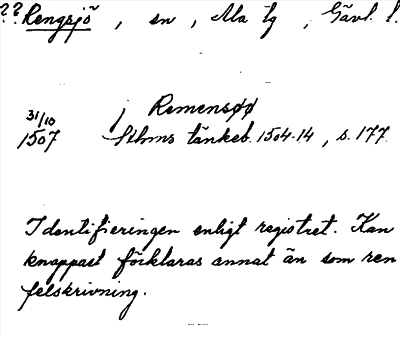 ?? Rengsjö, sn, Ala tg, Gävl. l.
31/10 j Remensøø
1507 Sthms tänkeb. 1504-14, s. 177
Identifieringen enligt registret. Kan
knappast förklaras annat än som ren
felskrivning.